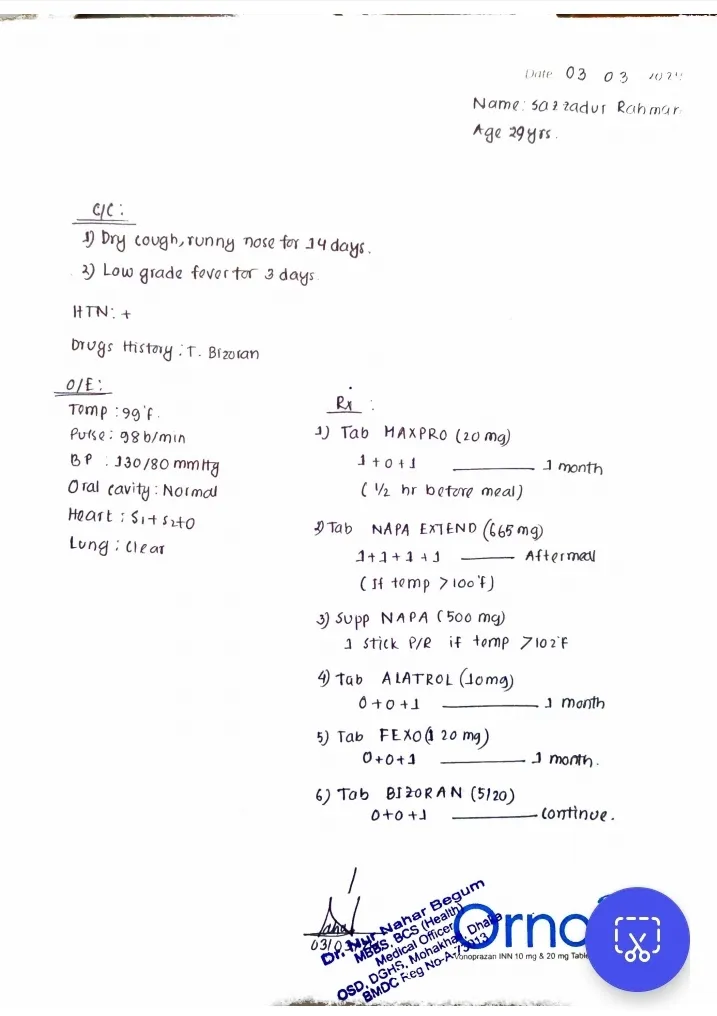 Date 03 03
Name: Sazzadur Rahman
Age 29 yrs.
C/C:
1) Dry cough, runny nose for 14 days.
2) Low grade fever for 3 days.
HTN: +
Drugs History: T. Bizoran
O/E:
Temp: 99°f.
Pulse: 98 b/min
BP: 130/80 mmHg
Oral cavity: Normal
Heart: S1+S2+0
Lung: Clear
Rx:
1) Tab MAXPRO (20 mg)
1+0+1 ——— 1 month
(1/2 hr before meal)
2) Tab NAPA EXTEND (665 mg)
1+1+1+1 ——— After meal
(If temp >100°f)
3) Supp NAPA (500 mg)
1 stick P/R if temp >102°F
4) Tab ALATROL (10mg)
0+0+1 ——— 1 month
5) Tab FEXO (120 mg)
0+0+1 ——— 1 month.
6) Tab BIZORAN (5/20)
0+0+1 ——— continue.
Dr. Nur Nahar Begum
MBBS, BCS (Health)
Medical Officer
OSD, DGHS, Mohakhali, Dhaka
BMDC Reg No-A-73013
Vonoprazan INN 10 mg & 20 mg